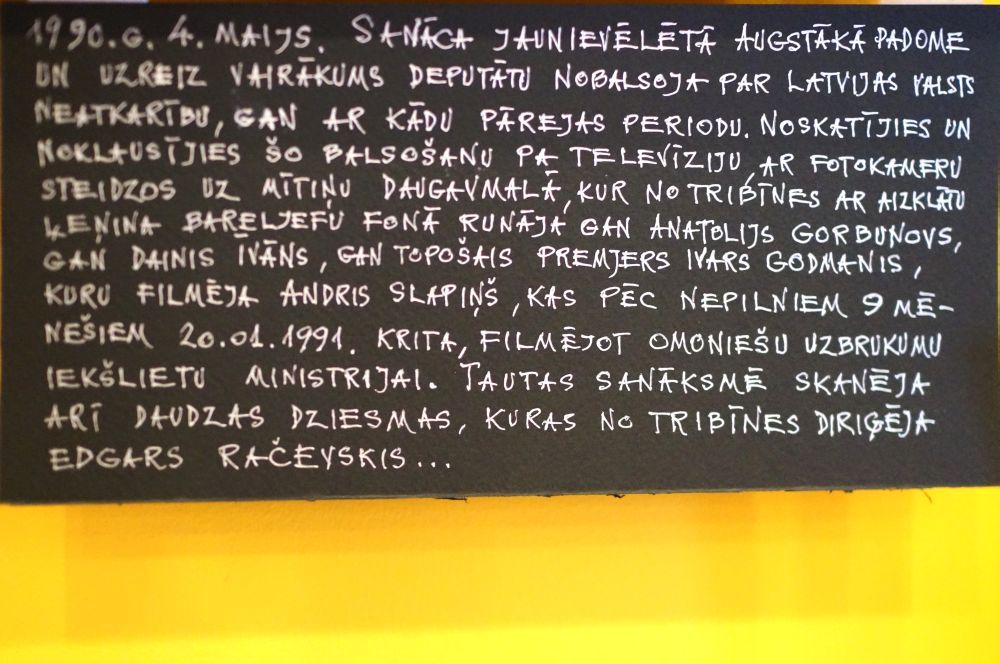 1990.G. 4. MAIJS. SANĀCA JAUNIEVĒLĒTĀ AUGSTĀKĀ PADOME
UN UZREIZ VAIRĀKUMS DEPUTĀTU NOBALSOJA PAR LATVIJAS VALSTS
NEATKARĪBU, GAN AR KĀDU PĀREJAS PERIODU. NOSKATĪJIES UN
NOKLAUSĪJIES ŠO BALSOŠANU PA TELEVĪZIJU, AR FOTOKAMERU
STEIDZOS UZ MĪTIŅU DAUGAVMALĀ, KUR NO TRIBĪNES AR AIZKLĀTU
ĻEŅINA BAREĻJEFU FONĀ RUNĀJA GAN ANATOLIJS GORBUNOVS,
GAN DAINIS ĪVĀNS, GAN TOPOŠAIS PREMJERS IVARS GODMANIS,
KURU FILMĒJA ANDRIS SLAPIŅŠ, KAS PĒC NEPILNIEM 9 MĒ-
NEŠIEM 20.01.1991. KRITA, FILMĒJOT OMONIEŠU UZBRUKUMU
IEKŠLIETU MINISTRIJAI. TAUTAS SANĀKSMĒ SKANĒJA
ARĪ DAUDZAS DZIESMAS, KURAS NO TRIBĪNES DIRIĢĒJA
EDGARS RAČEVSKIS...